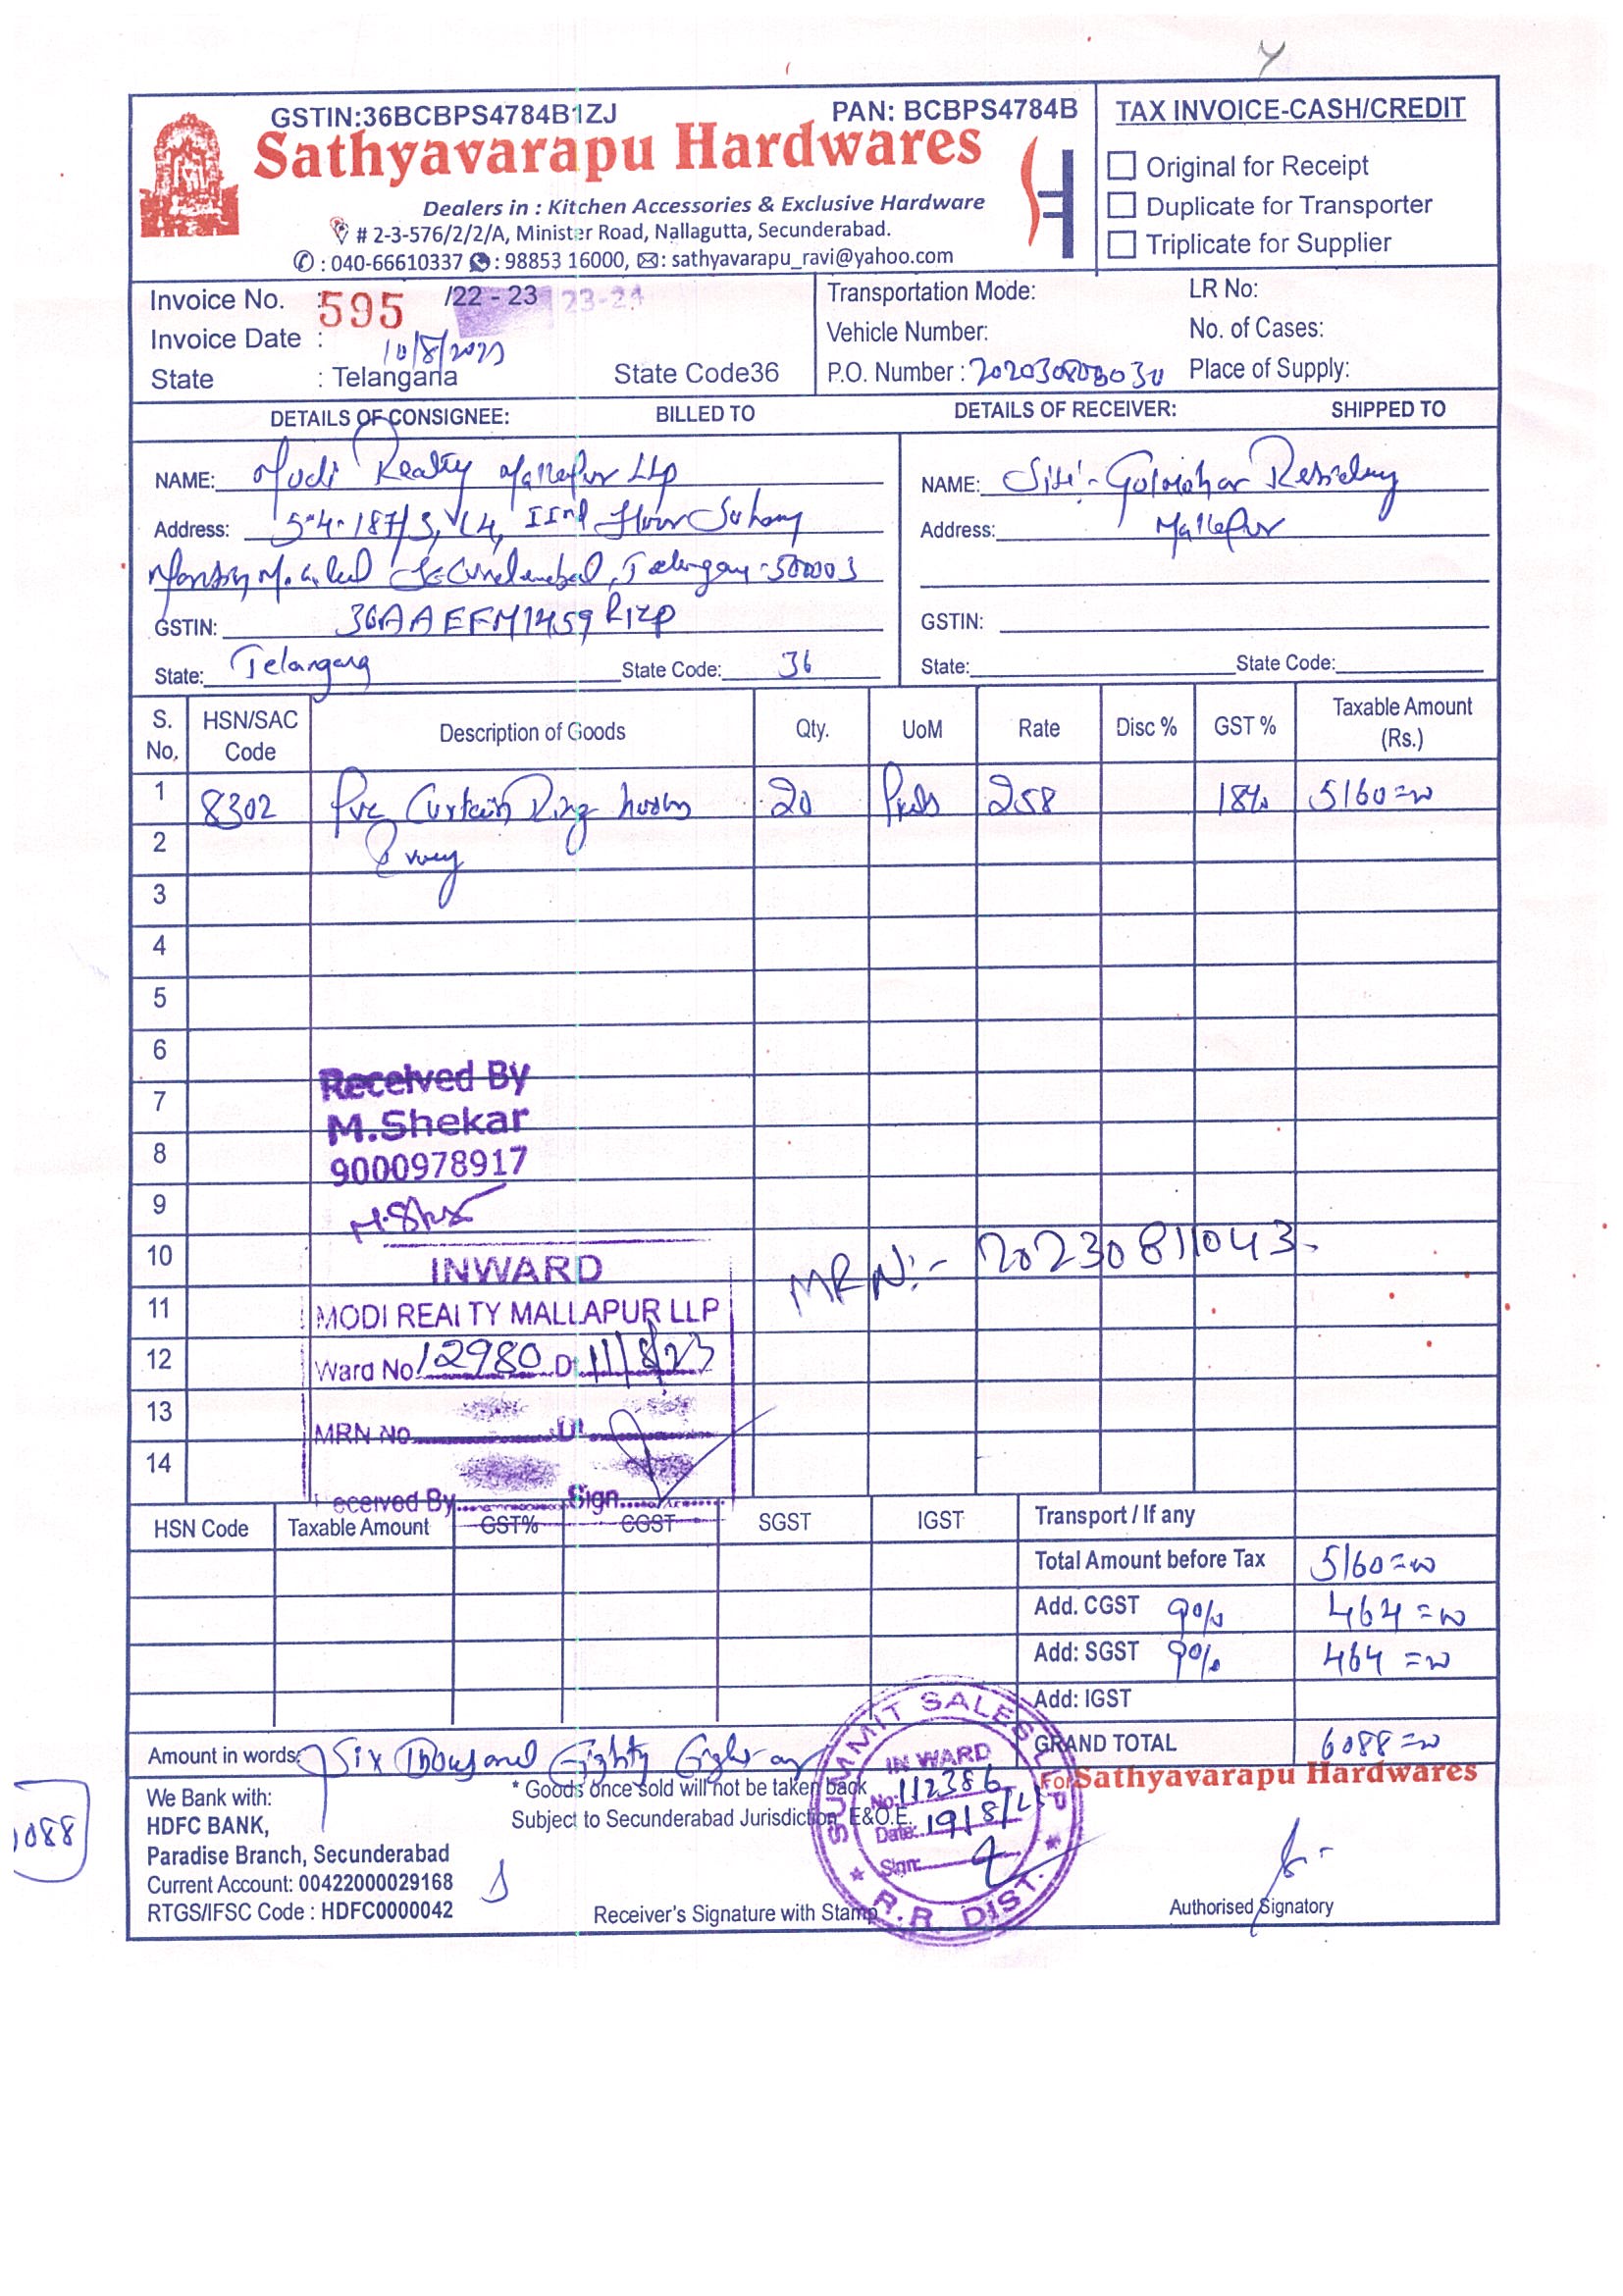 GSTIN:36BCBPS4784B1ZJ PAN: BCBPS4784B
TAX INVOICE-CASH/CREDIT
Sathyavarapu Hardwares
Original for Receipt
Duplicate for Transporter
Triplicate for Supplier
Dealers in : Kitchen Accessories & Exclusive Hardware
# 2-3-576/2/2/A, Minister Road, Nallagutta, Secunderabad.
: 040-66610337 : 98853 16000, : sathyavarapu_ravi@yahoo.com
Invoice No. : 595 /22 - 23 23-24
Invoice Date : 10/8/2023
State : Telangana State Code36
Transportation Mode: LR No:
Vehicle Number: No. of Cases:
P.O. Number : Place of Supply:
DETAILS OF CONSIGNEE: BILLED TO
DETAILS OF RECEIVER: SHIPPED TO
NAME: Modi Realty Mallapur LLP
Address: 5-4-187/3, &4, IInd Floor Soham
Secunderabad, Telangana-500003
GSTIN: 36AAEFM1459R1ZP
State: Telangana State Code: 36
NAME: Site:- Gulmohar Residency
Address: Mallapur
GSTIN:
State: State Code:
S. No. HSN/SAC Code Description of Goods Qty. UoM Rate Disc % GST % Taxable Amount (Rs.)
1 8302 Pvc Curtain Ring hooks 20 258 18% 5160=00
2
3
4
5
6
7
8
9
10
11
12
13
14
Received By
M.Shekar
9000978917
INWARD
MODI REALTY MALLAPUR LLP
Ward No. 12980 D 11/8/23
MRN No.
eceived By Sign
MRN:- 20230811043-
HSN Code Taxable Amount GST% CGST SGST IGST
Transport / If any
Total Amount before Tax 5160=00
Add. CGST 9% 464=00
Add: SGST 9% 464=00
Add: IGST
GRAND TOTAL 6088=00
Amount in words: Six Thousand Eighty Eight
We Bank with:
HDFC BANK,
Paradise Branch, Secunderabad
Current Account: 00422000029168
RTGS/IFSC Code : HDFC0000042
* Goods once sold will not be taken back
Subject to Secunderabad Jurisdiction. E&O.E.
Receiver's Signature with Stamp
SUMMIT SALES LLP
IN WARD
No: 112386
Date: 19/8/23
Sign:
R.R. DIST.
For Sathyavarapu Hardwares
Authorised Signatory
1088